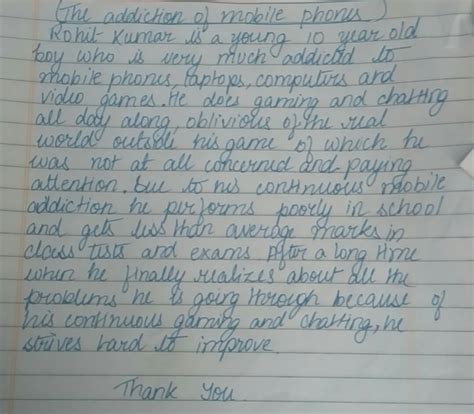 (The addiction of mobile phones)
Rohit Kumar is a young 10 year old
boy who is very much addicted to
mobile phones, laptops, computers and
video games. He does gaming and chatting
all day along, oblivious of the real
world outside his game of which he
was not at all concerned and paying
attention. Due to his continuous mobile
addiction he performs poorly in school
and gets less than average marks in
class tests and exams. After a long time
when he finally realizes about all the
problems he is going through because of
his continuous gaming and chatting, he
strives hard to improve.
Thank You.